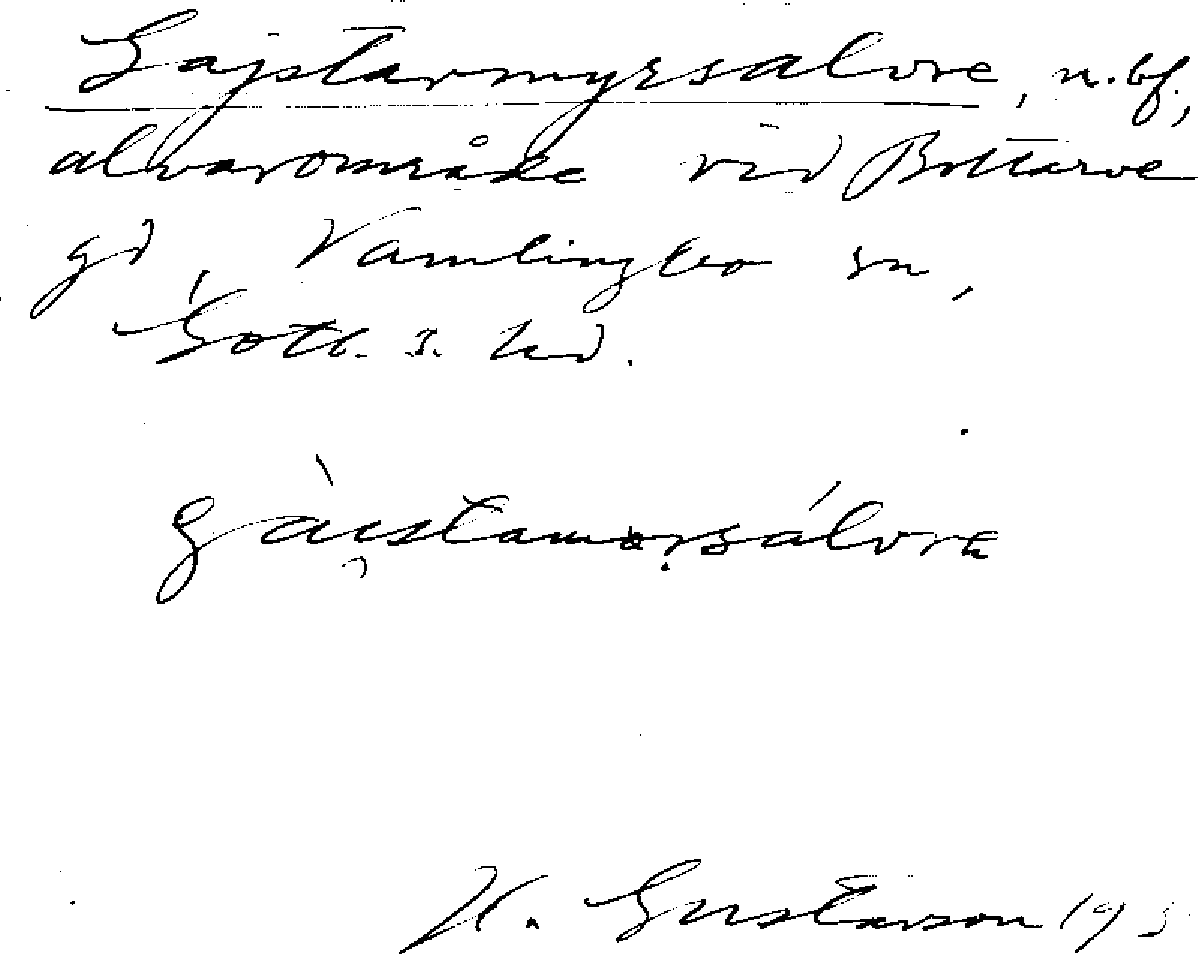 Gajstarmyrsalvre, n. bf.,
alvarområde vid Bottarve
gd, Vamlingbo sn,
Gotl. s. hd.
gàı̯stamørsálvrɛ
H. Gustavson 193